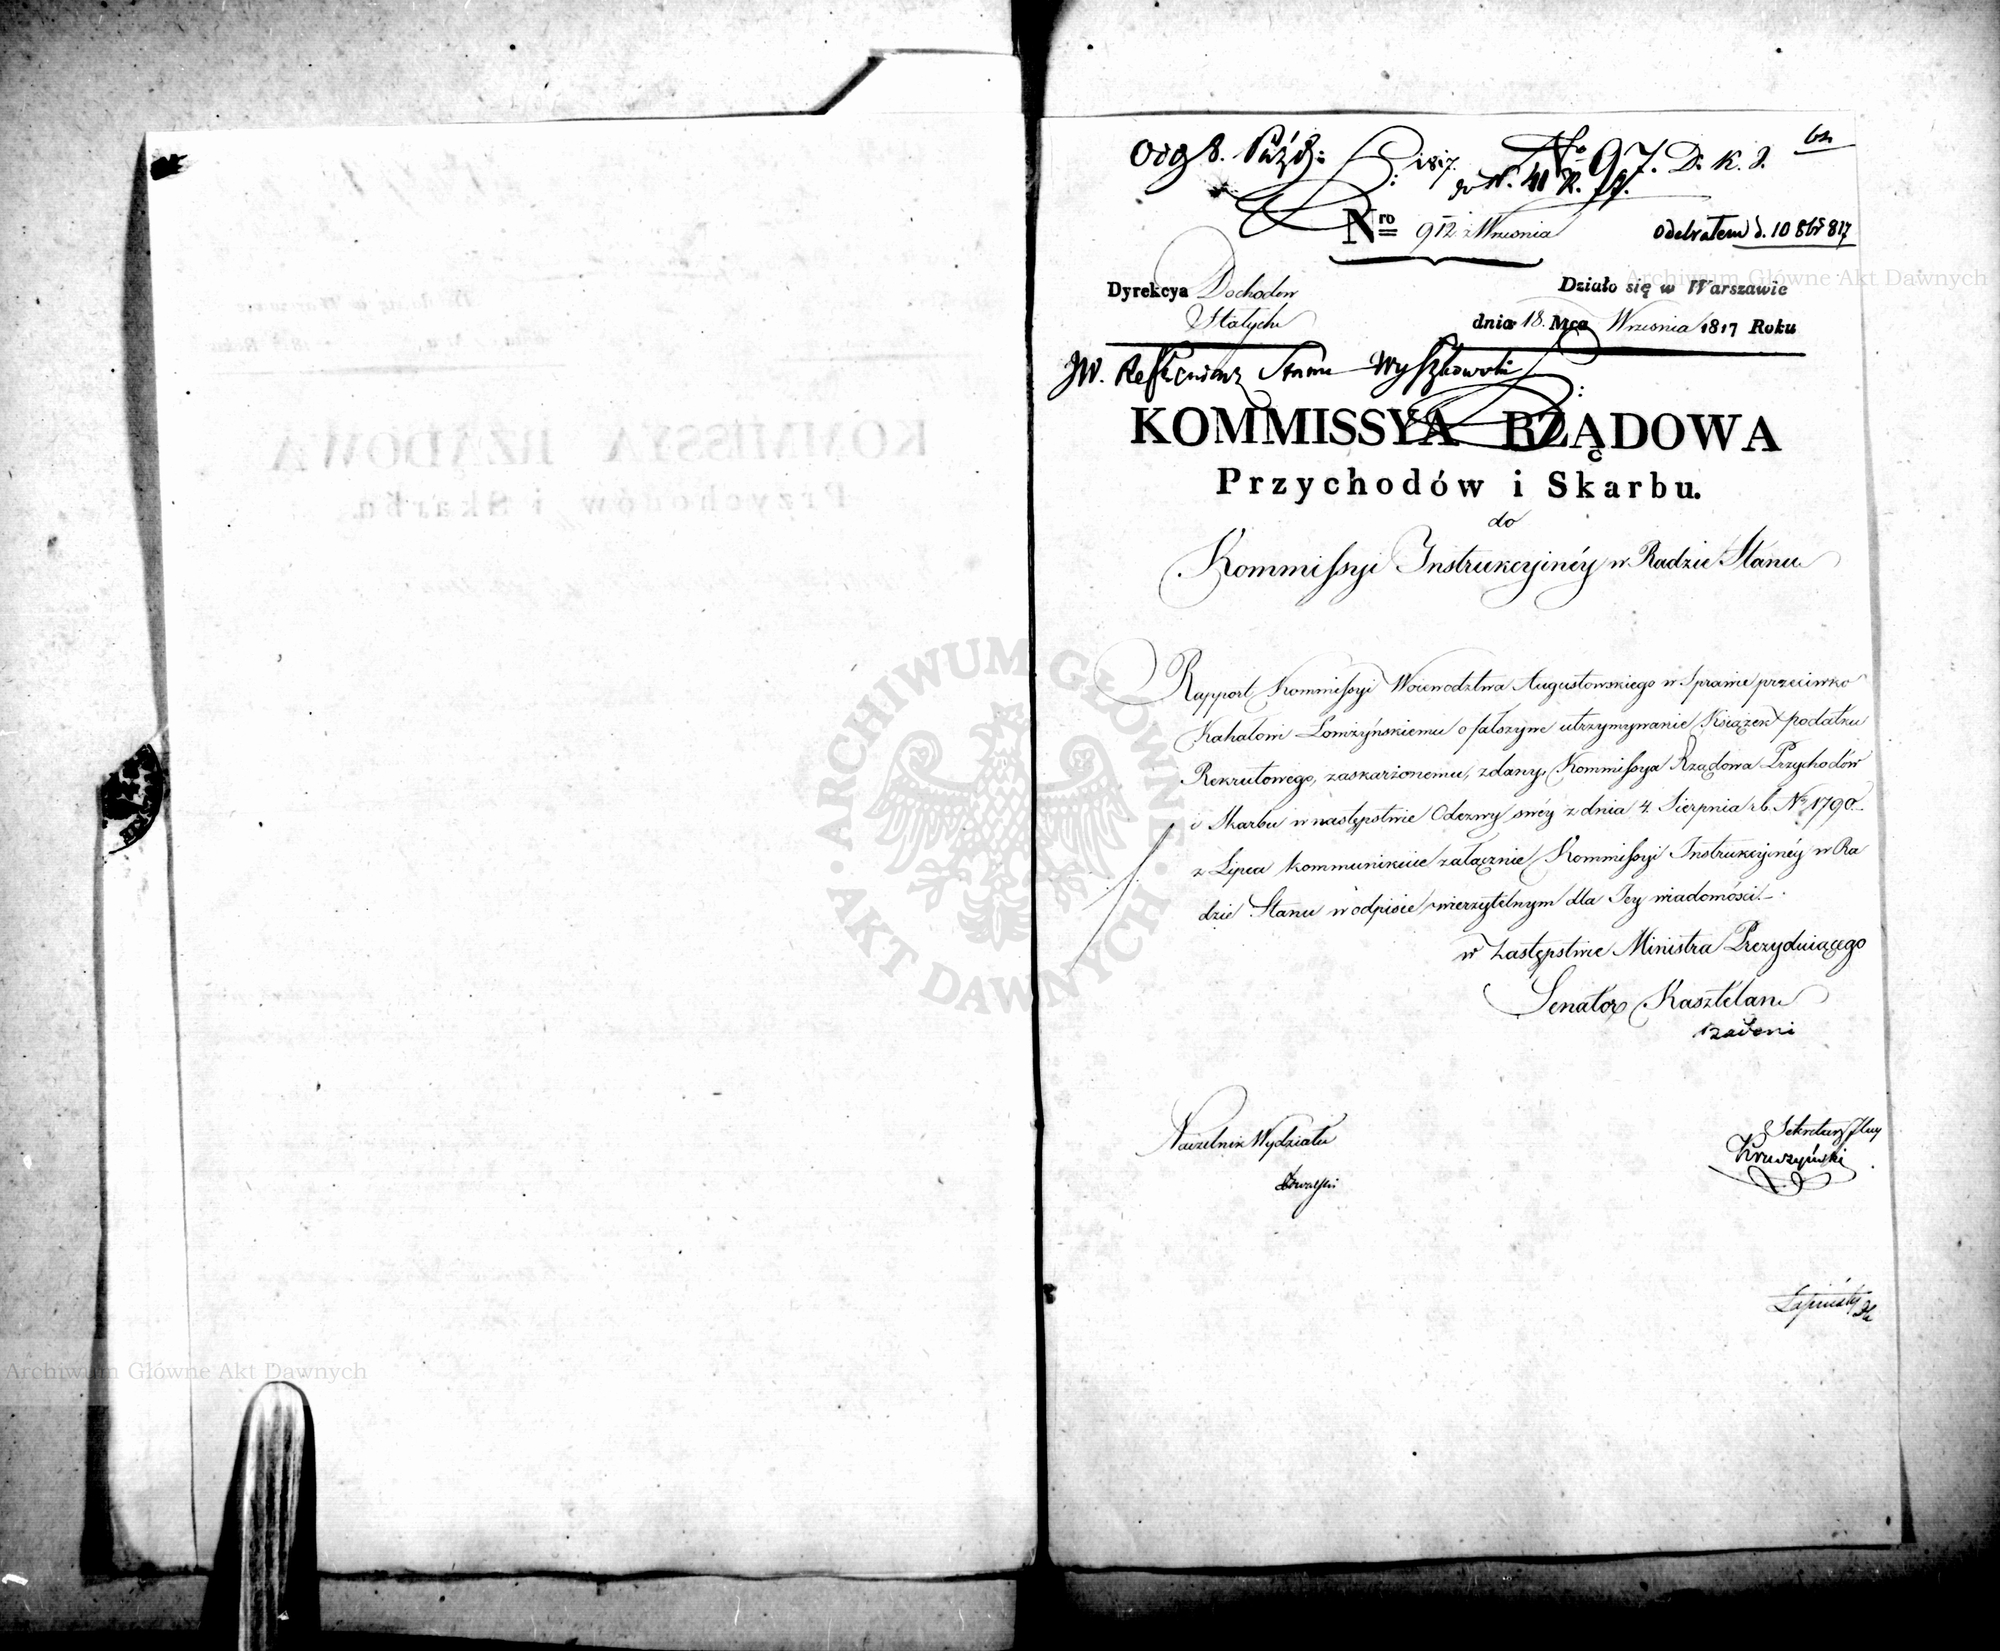 odg 8. Paźdz: 1817.
No 97. D. K. J.
62
Nro 912 z Wrzesnia
odebrałem d. 10 8br 817
Dyrekcya Dochodow
Stałych
Działo się w Warszawie
dnia 18. Mca Wrzesnia 1817 Roku
JW. Referendarz Stanu Wyszkowski
KOMMISSYA RZĄDOWA
Przychodów i Skarbu.
do
Kommissyi Instrukcyinéy w Radzie Stanu
Rapport Kommissyi Woiewodztwa Augustowskiego w Sprawie przeciwko
Kahałowi Łomżyńskiemu o fałszywe utrzymywanie Książek podatku
Rekrutowego, zaskarżonemu, zdany, Kommissya Rządowa Przychodów
i Skarbu w następstwie Odezwy swéy z dnia 4. Sierpnia r.b. No 1790.
z Lipca kommunikuie załącznie Kommissyi Instrukcyinéy w Ra
dzie Stanu w odpisie wierzytelnym dla Jey wiadomości.
w Zastępstwie Ministra Prezyduiącego
Senator Kasztelan
Badeni
Naczelnik Wydziału
Sekretarz Jlny
Kruszyński
ARCHIWUM GŁÓWNE AKT DAWNYCH
Archiwum Główne Akt Dawnych
Archiwum Główne Akt Dawnych